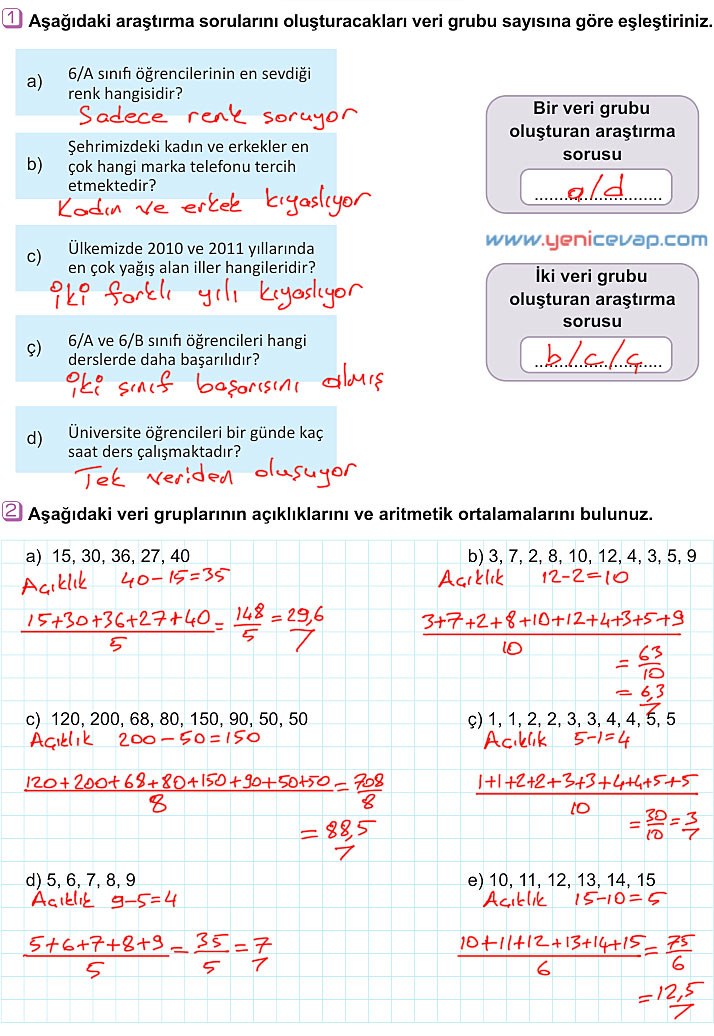 1 Aşağıdaki araştırma sorularını oluşturacakları veri grubu sayısına göre eşleştiriniz.
a) 6/A sınıfı öğrencilerinin en sevdiği
renk hangisidir?
Sadece renk soruyor
b) Şehrimizdeki kadın ve erkekler en
çok hangi marka telefonu tercih
etmektedir?
Kadın ve erkek kıyaslıyor
c) Ülkemizde 2010 ve 2011 yıllarında
en çok yağış alan iller hangileridir?
iki farklı yılı kıyaslıyor
ç) 6/A ve 6/B sınıfı öğrencileri hangi
derslerde daha başarılıdır?
iki sınıf başarısını almış
d) Üniversite öğrencileri bir günde kaç
saat ders çalışmaktadır?
Tek veriden oluşuyor
Bir veri grubu
oluşturan araştırma
sorusu
a/d
www.yenicevap.com
İki veri grubu
oluşturan araştırma
sorusu
b/c/ç
2 Aşağıdaki veri gruplarının açıklıklarını ve aritmetik ortalamalarını bulunuz.
a) 15, 30, 36, 27, 40
Açıklık 40-15=35
15+30+36+27+40/5 = 148/5 = 29,6
b) 3, 7, 2, 8, 10, 12, 4, 3, 5, 9
Açıklık 12-2=10
3+7+2+8+10+12+4+3+5+9/10
= 63/10
= 6,3
c) 120, 200, 68, 80, 150, 90, 50, 50
Açıklık 200-50=150
120+200+68+80+150+90+50+50/8 = 708/8
= 88,5
ç) 1, 1, 2, 2, 3, 3, 4, 4, 5, 5
Açıklık 5-1=4
1+1+2+2+3+3+4+4+5+5/10
= 30/10 = 3
d) 5, 6, 7, 8, 9
Açıklık 9-5=4
5+6+7+8+9/5 = 35/5 = 7
e) 10, 11, 12, 13, 14, 15
Açıklık 15-10=5
10+11+12+13+14+15/6 = 75/6
= 12,5